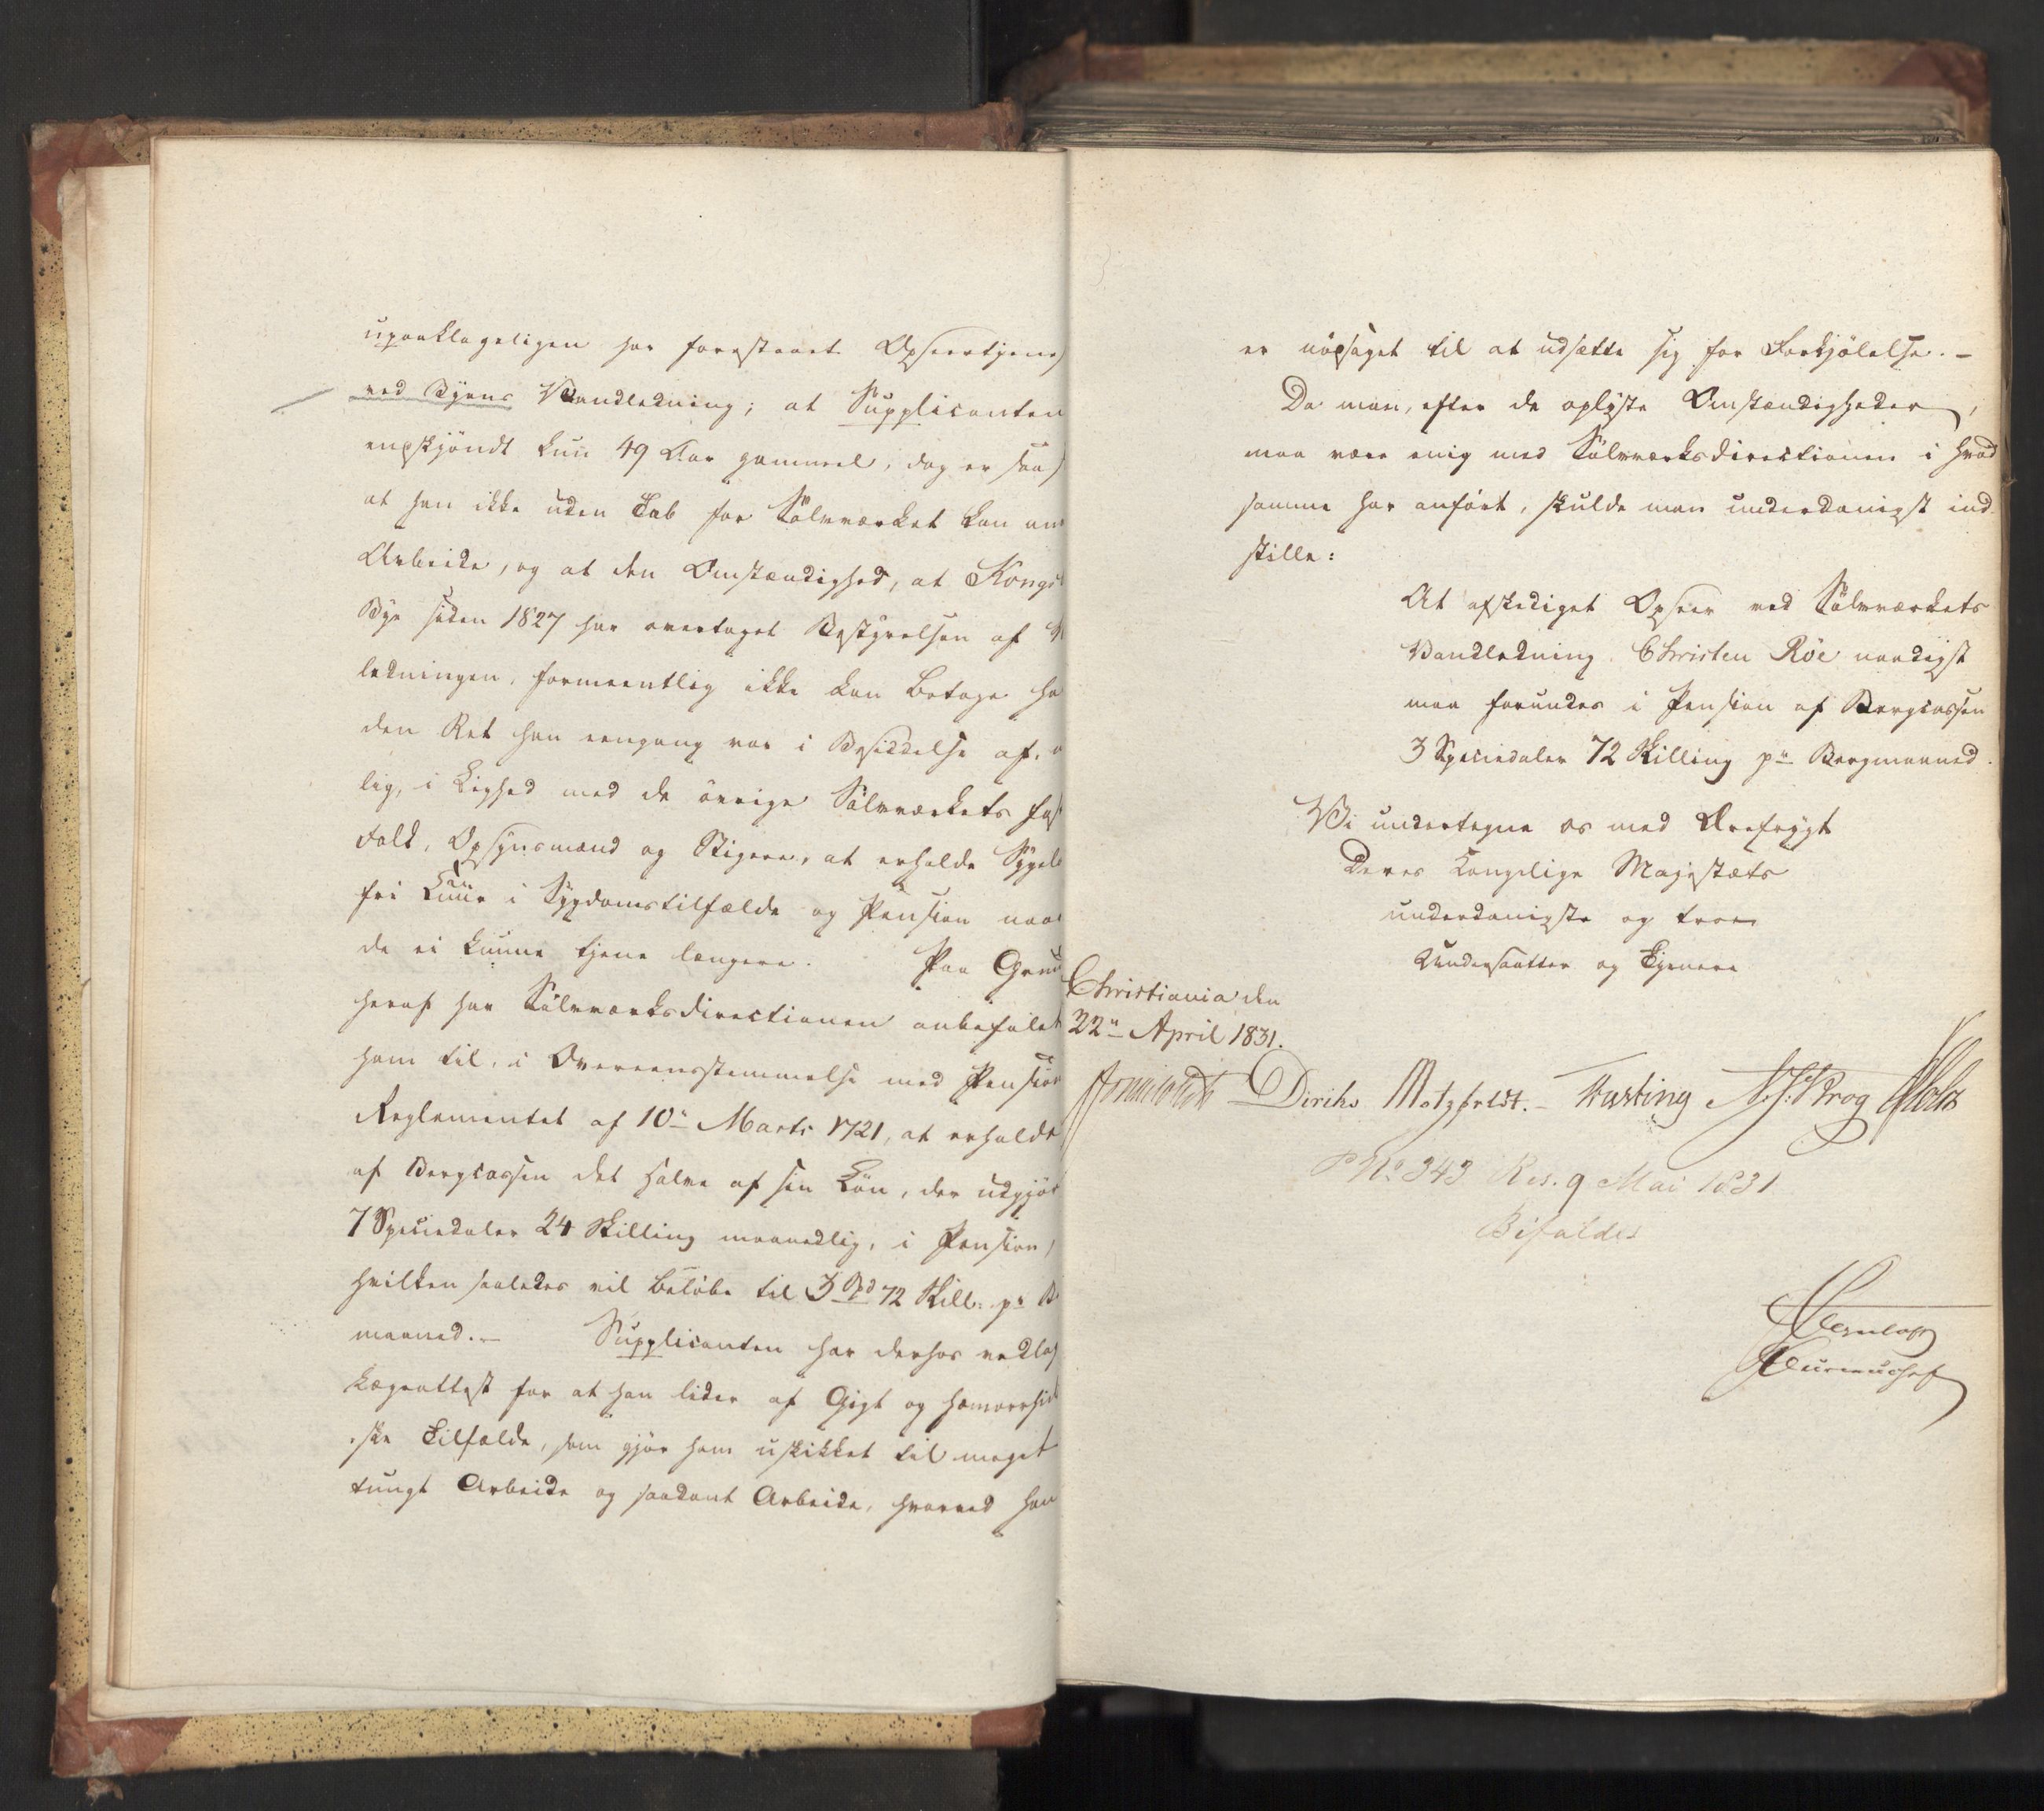 upaaklageligen har forestaaet Opseertjenes
ved Byens Vandledning; at Supplicanten
enskjöndt kun 49 Aar gammel, dog er saa
at han ikke uden Tab for Sölvværket kan an
Arbeide, og at den Omstændighed, at Kongs
Bye siden 1827 har overtaget Bestyrelsen af V
ledningen, formeentlig ikke kan betage ha
den Ret han eengang var i Besiddelse af,
lig, i Lighed med de övrige Sölvværkets fas
Folk, Opsynsmænd og Stigere, at erholde Sygel
fri Cuur i Sygdomstilfælde og Pension naar
de ei kunne tjene længere. Paa Grund
heraf har Sölvværksdirectionen anbefalet
ham til, i Overeensstemmelse med Pension
Reglementet af 10n Marts 1721, at erholde
af Bergcassen det halve af sin Lön, der udgjör
7 Speciedaler 24 Skilling maanedlig, i Pension,
hvilken saaledes vil belöbe til 3 Spd 72 Skill: pr B
maaned.- Supplicanten har derhos vedlag
Lægeattest for at han lider af Gigt og hæmorrhoid
ske Tilfælde, som gjör ham uskikket til meget
tungt Arbeide og saadant Arbeide, hvorved han
er nödsaget til at udsætte sig for Forkjölelse. -
Da man, efter de oplyste Omstændigheder,
maa være enig med Sölvværksdirectionen i hvad
samme har anfört, skulde man underdanigst ind
stille:
At afskediget Opseer ved Sölvværkets
Vandledning Christen Röe naadigst
maa forundes i Pension af Bergcassen
3 Speciedaler 72 Skilling pr Bergmaaned.
Vi undertegne os med Ærefrygt
Deres Kongelige Majestæts
underdanigste og troe
Undersaatter og Tjenere
Christiania den
22n April 1831.
Diriks Motzfeldt. - Fasting N. J. Krog Holst
No 343 Res. 9 Mai 1831
Bifaldes